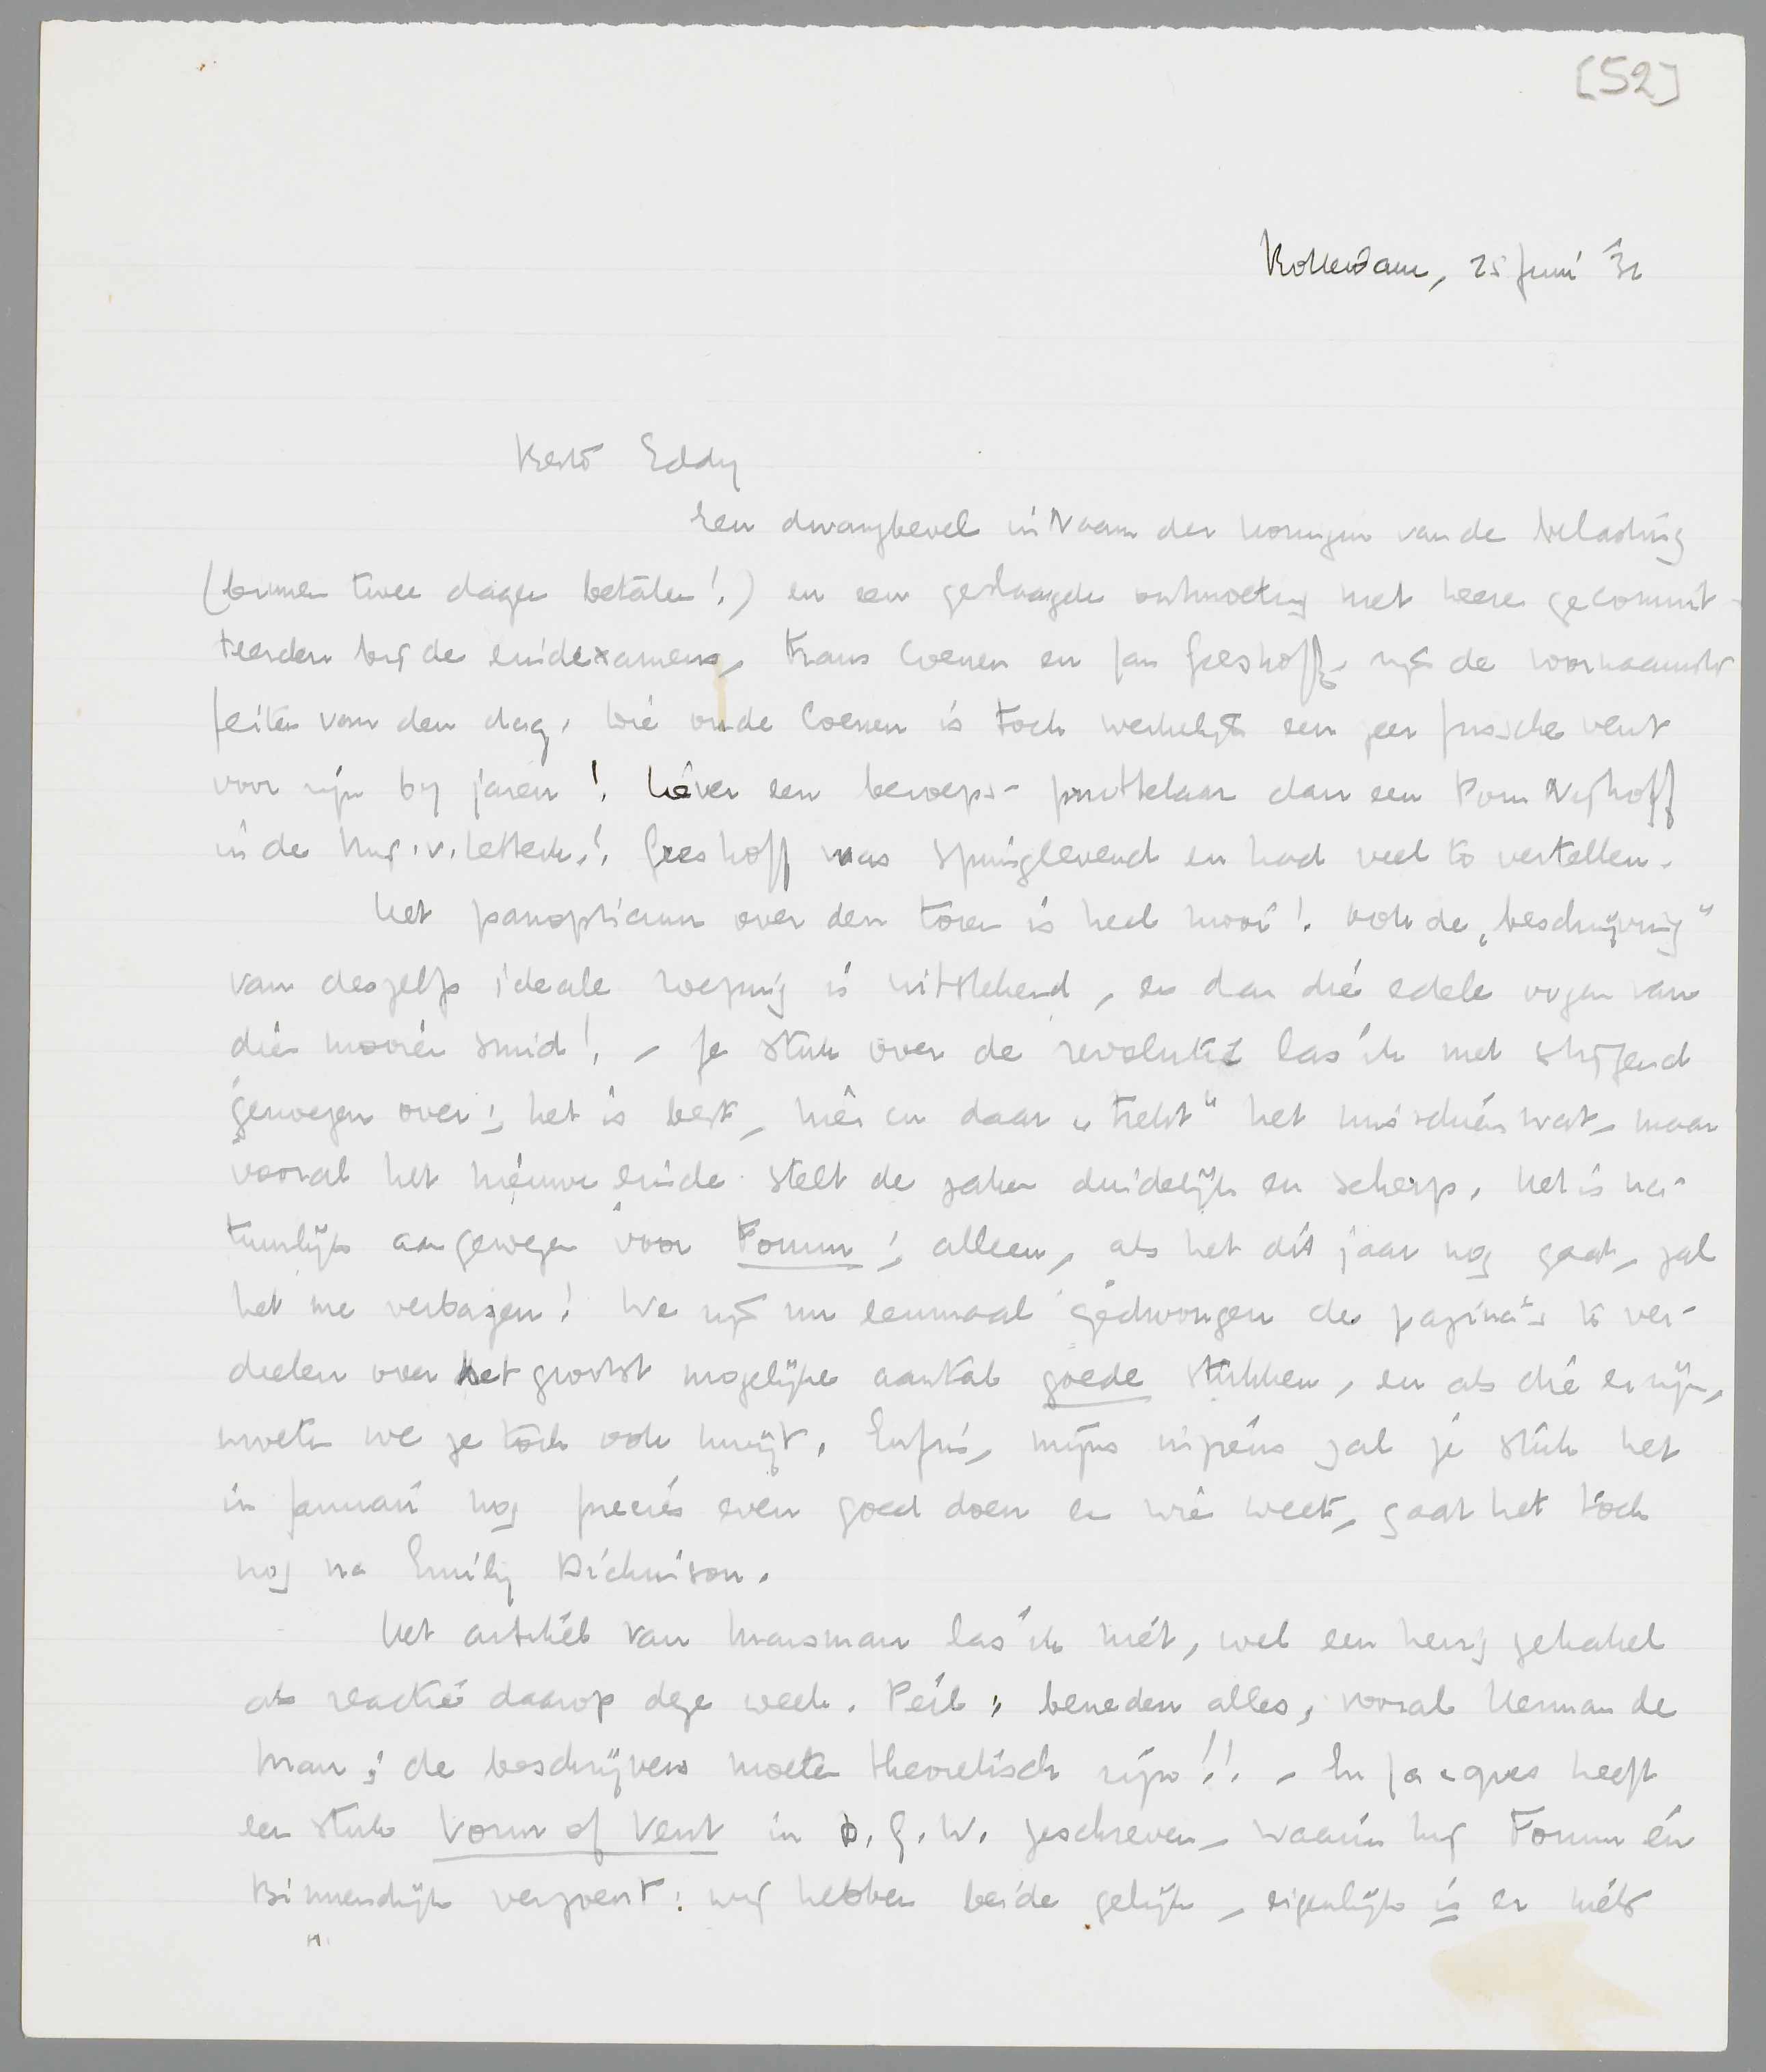 [52]
Rotterdam, 25 Juni '32
Beste Eddy
Een dwangbevel in Naam der Koningin van de belasting
(binnen twee dagen betalen!) en een geslaagde ontmoeting met heeren gecommit-
teerden bij de eindexamens, Frans Coenen en Jan Greshoff, zijn de voornaamste
feiten van den dag. Die oude Coenen is toch werkelijk een zeer frissche vent
voor zijn 67 jaren! Liever een beroeps-pruttelaar dan een Pom Nijhoff
in de Mij. v. Letterk.! Greshoff was springlevend en had veel te vertellen.
Het panopticum over den toren is heel mooi! Ook de „beschrijving"
van deszelfs ideale roeping is uitstekend, en dan die edele oogen van
die mooien smid! – Je stuk over de revolutie las ik met stijgend
genoegen over; het is best, hier en daar „trekt" het misschien wat, maar
vooral het nieuwe einde stelt de zaken duidelijk en scherp. Het is na-
tuurlijk aangewezen voor Forum; alleen, als het dit jaar nog gaat, zal
het me verbazen! We zijn nu eenmaal gedwongen de pagina's te ver-
deelen over het grootst mogelijke aantal goede stukken, en als die er zijn,
moeten we ze toch ook kwijt. Enfin, mijns inziens zal je stuk het
in Januari nog precies even goed doen en wie weet, gaat het toch
nog na Emily Dickinson.
Het artikel van Marsman las ik niet, wel een hevig gekakel
als reactie daarop deze week. Peil: beneden alles, vooral Herman de
Man; de beschrijvers moeten theoretisch zijn!! – En Jacques heeft
een stuk Vorm of Vent in D.G.W. geschreven, waarin hij Forum én
Binnendijk verzoent: wij hebben beide gelijk, eigenlijk is er niets